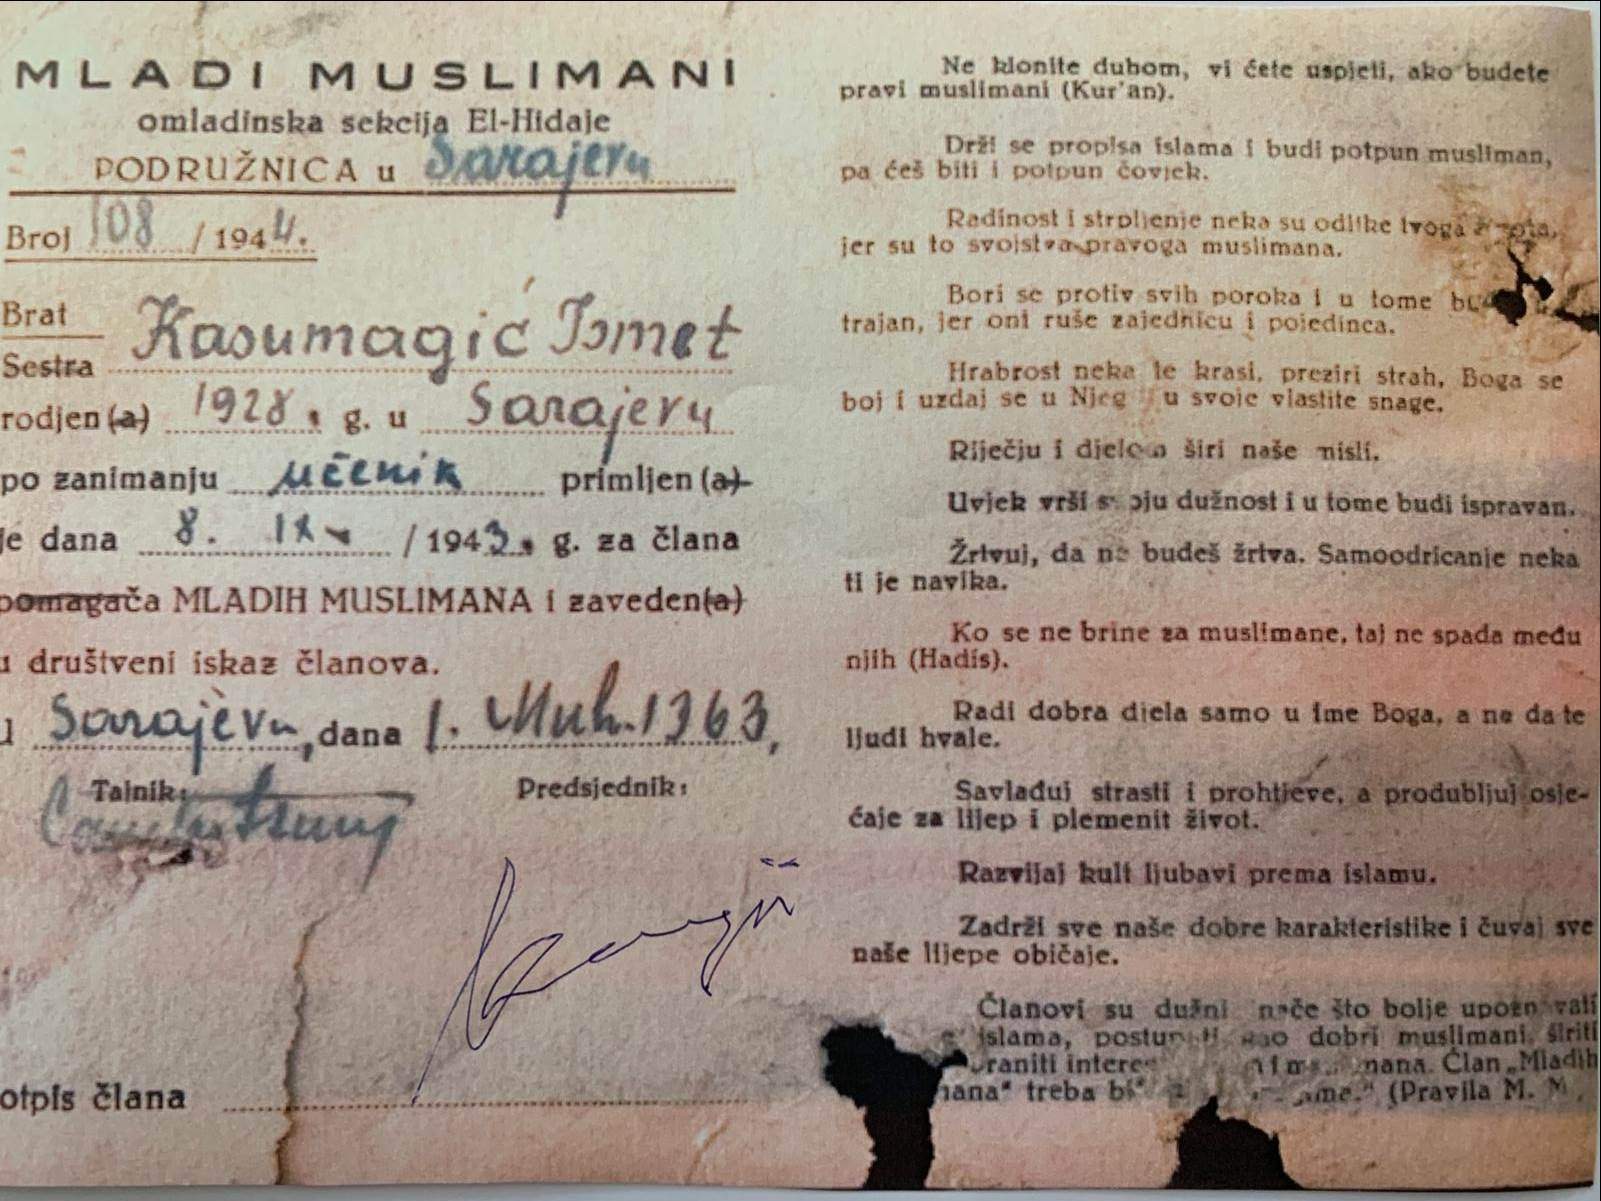 MLADI MUSLIMANI
omladinska sekcija El-Hidaje
PODRUŽNICA u Sarajevu
Broj 108 / 1944.
Brat
Sestra
Kasumagić Ismet
rodjen(a) 1928. g. u Sarajevu
po zanimanju učenik primljen(a)
je dana 8. IX / 1943. g. za člana
pomagača MLADIH MUSLIMANA i zaveden(a)
u društveni iskaz članova.
U Sarajevu, dana 1. Muh. 1363,
Tajnik: Predsjednik:
otpis člana
Ne klonite duhom, vi ćete uspjeti, ako budete
pravi muslimani (Kur'an).
Drži se propisa islama i budi potpun musliman,
pa ćeš biti i potpun čovjek.
Radinost i strpljenje neka su odlike tvoga
jer su to svojstva pravoga muslimana.
Bori se protiv svih poroka i u tome
trajan, jer oni ruše zajednicu i pojedinca.
Hrabrost neka te krasi, preziri strah, Boga se
boj i uzdaj se u Njeg u svoje vlastite snage.
Riječju i djelom širi naše misli.
Uvjek vrši svoju dužnost i u tome budi ispravan.
Žrtvuj, da ne budeš žrtva. Samoodricanje neka
ti je navika.
Ko se ne brine za muslimane, taj ne spada među
njih (Hadis).
Radi dobra djela samo u ime Boga, a ne da te
ljudi hvale.
Savlađuj strasti i prohtjeve, a produbljuj osje-
ćaje za lijep i plemenit život.
Razvijaj kult ljubavi prema islamu.
Zadrži sve naše dobre karakteristike i čuvaj sve
naše lijepe običaje.
Članovi su dužni što bolje upoznavati
islama, postupati kao dobri muslimani, širiti
Član „Mladih
treba (Pravila M. M.